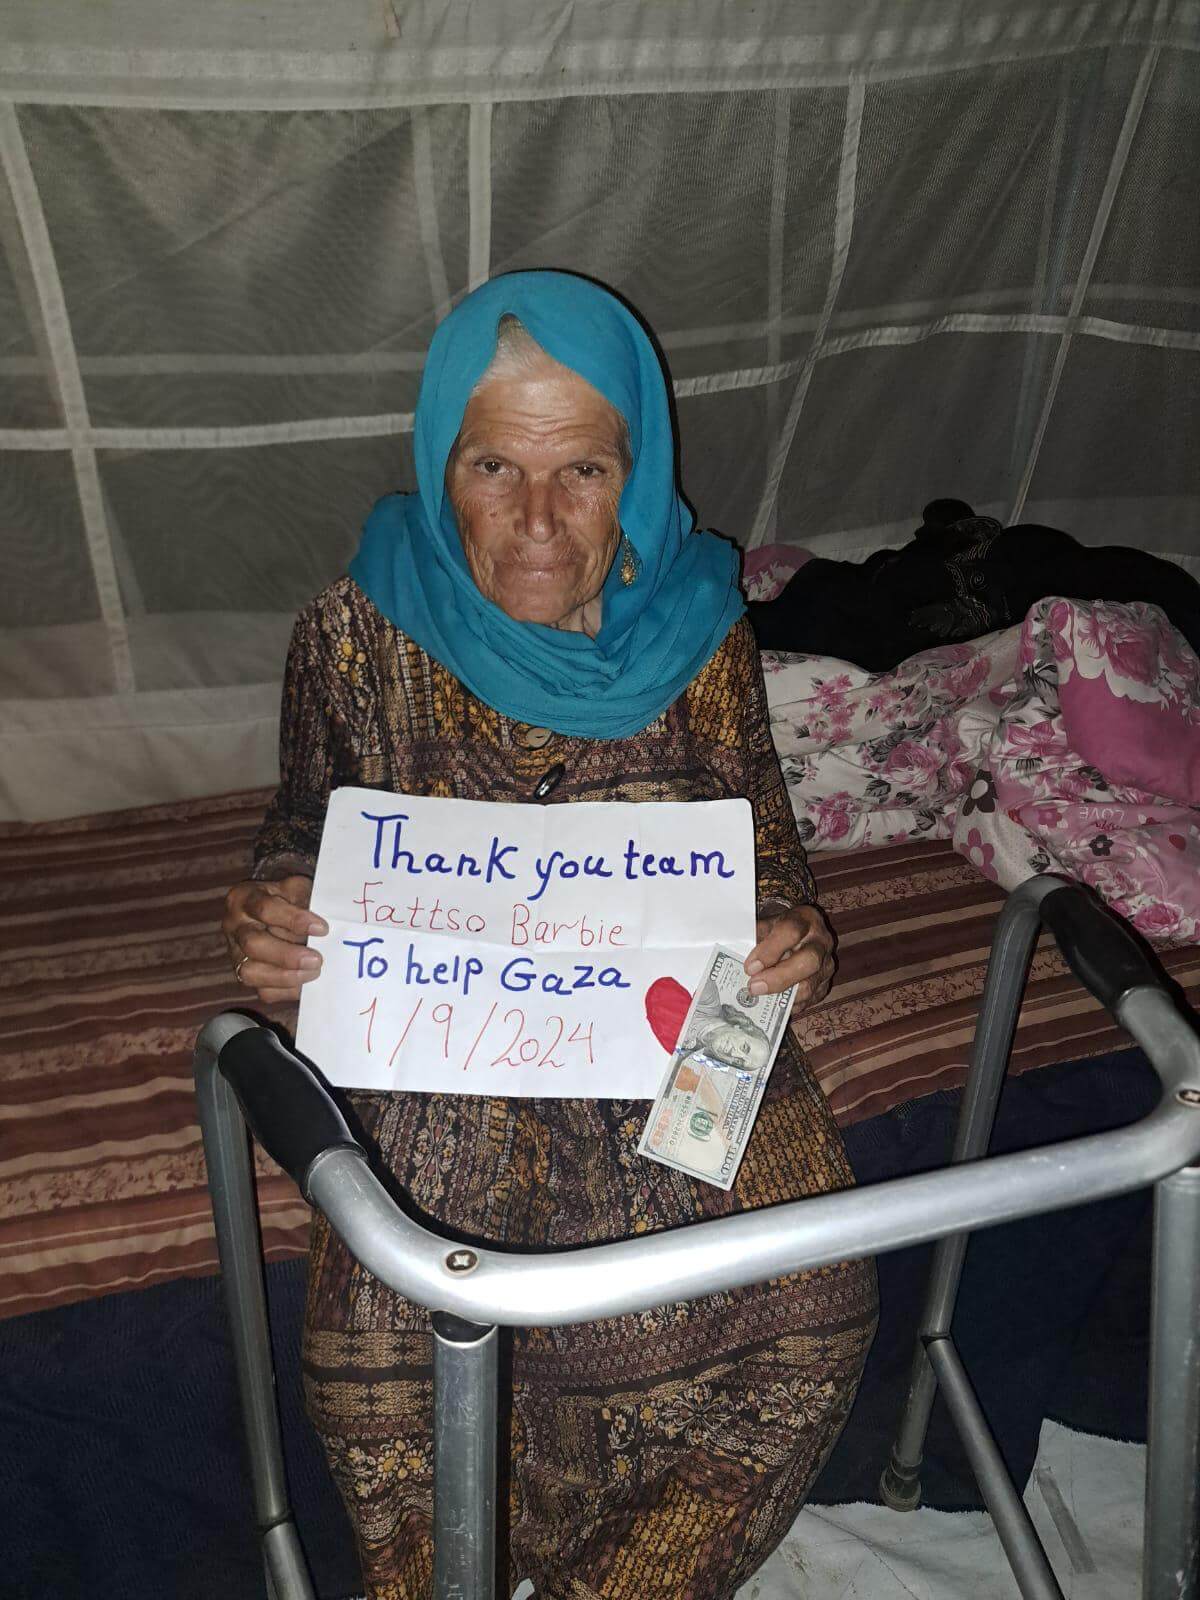 Thank you team
Fattso Barbie
To help Gaza
1/9/2024
100
100
100
LOVE